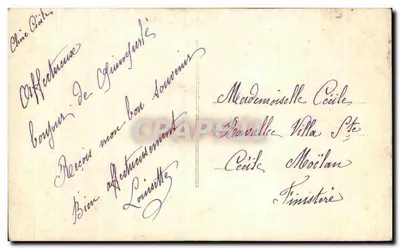 Chère Cécile
Affectueux
bonjour de Quimperlé
Reçois mon bon souvenir
Bien affectueusement
Louisette
Mademoiselle Cécile
Villa Ste
Cécile Moëlan
Finistère